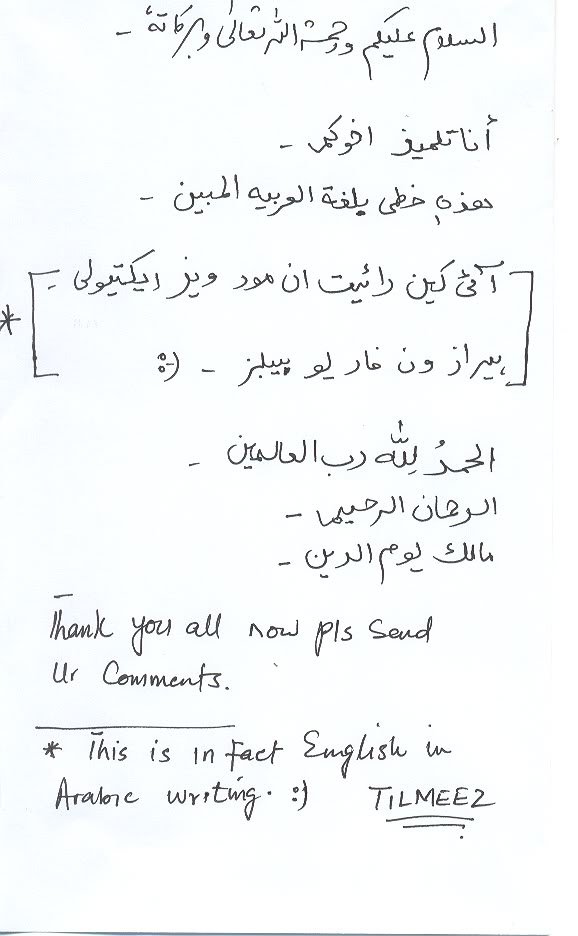 السلام عليكم ورحمة الله تعالىٰ وبركاتهٗ ـ
أنا تلميذ اخوكم ـ
هذهِ خطى بلغة العربيه المبين ـ
[ آئى كين رائيت ان مور ويز ايكتيولى ـ
* هيراز ون فار يو پيپلز ـ :-) ]
الحمدُ لِلّٰه رب العالمين ـ
الرحمان الرحيم ـ
مالك يوم الدين ـ
Thank you all now pls Send
Ur Comments.
* This is in fact English in
Arabic writing. :) TILMEEZ